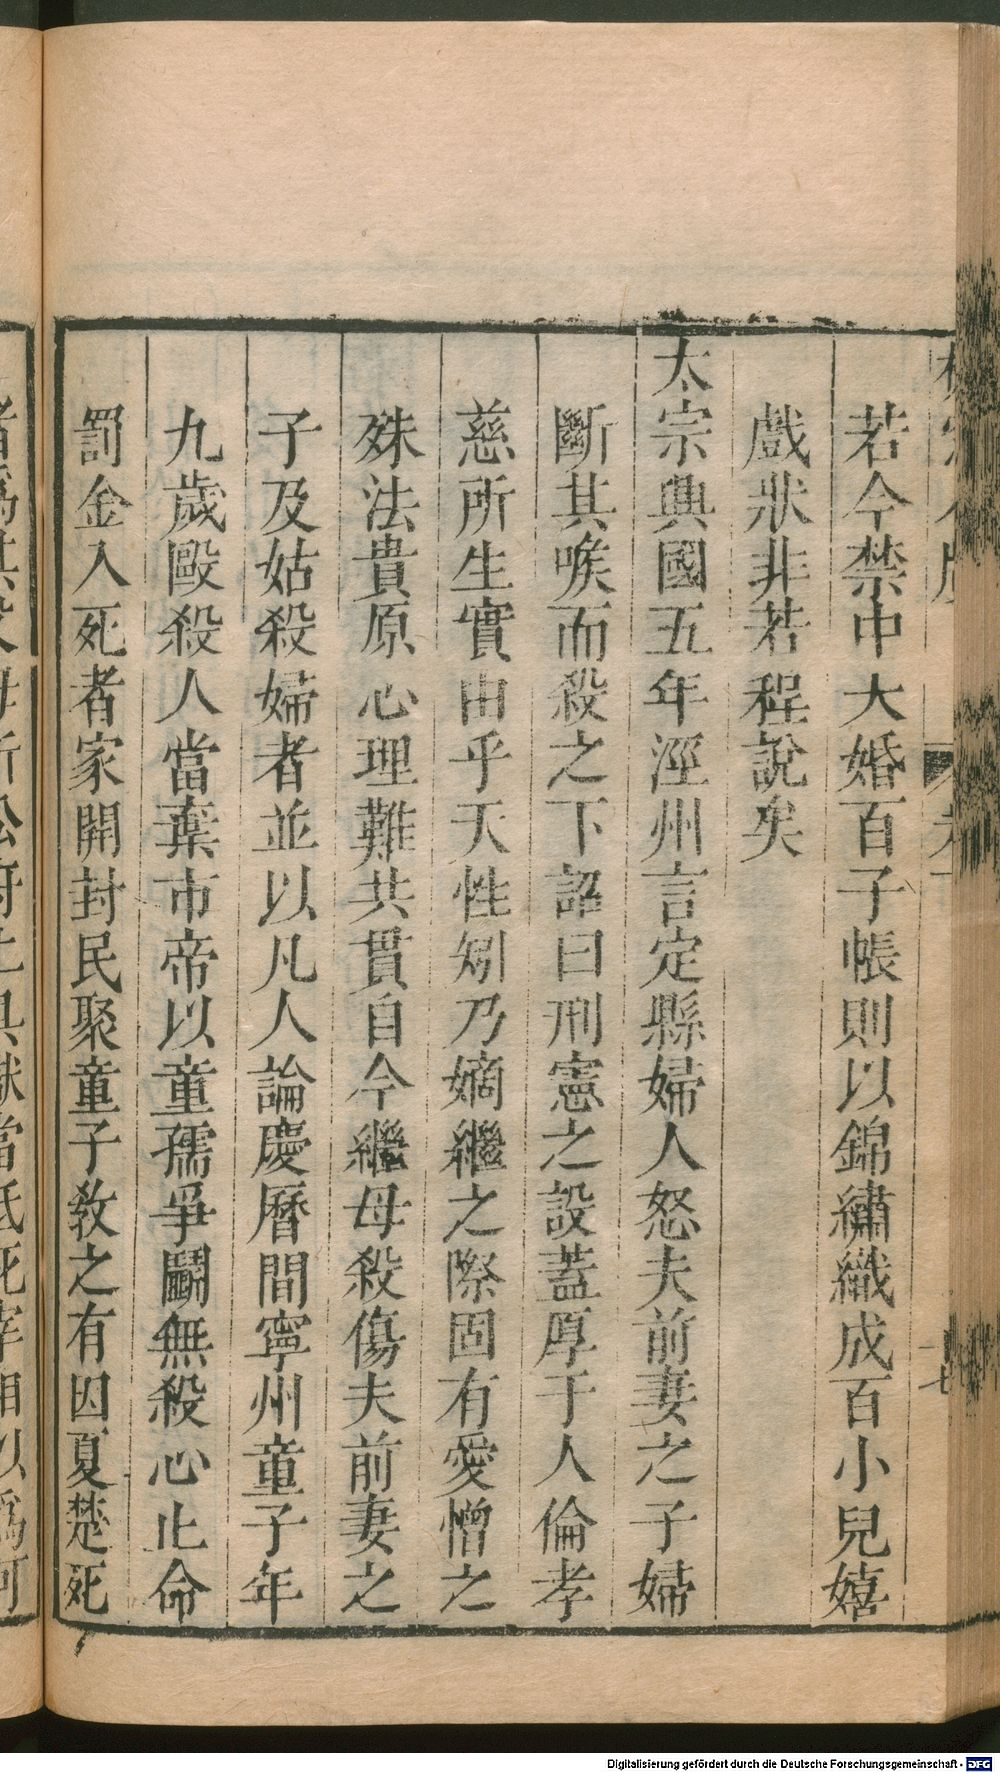 若今禁中大婚百子帳則以錦繡織成百小兒嬉
戲狀非若程說矣
太宗興國五年涇州言定縣婦人怒夫前妻之子婦
斷其喉而殺之下詔曰刑憲之設蓋厚于人倫孝
慈所生實由乎天性矧乃嫡繼之際固有愛憎之
殊法貴原心理難共貫自今繼母殺傷夫前妻之
子及姑殺婦者並以凡人論慶曆間寧州童子年
九歲毆殺人當棄市帝以童孺爭鬭無殺心止命
罰金入死者家開封民聚童子敎之有因夏楚死
Digitalisierung gefördert durch die Deutsche Forschungsgemeinschaft - DFG